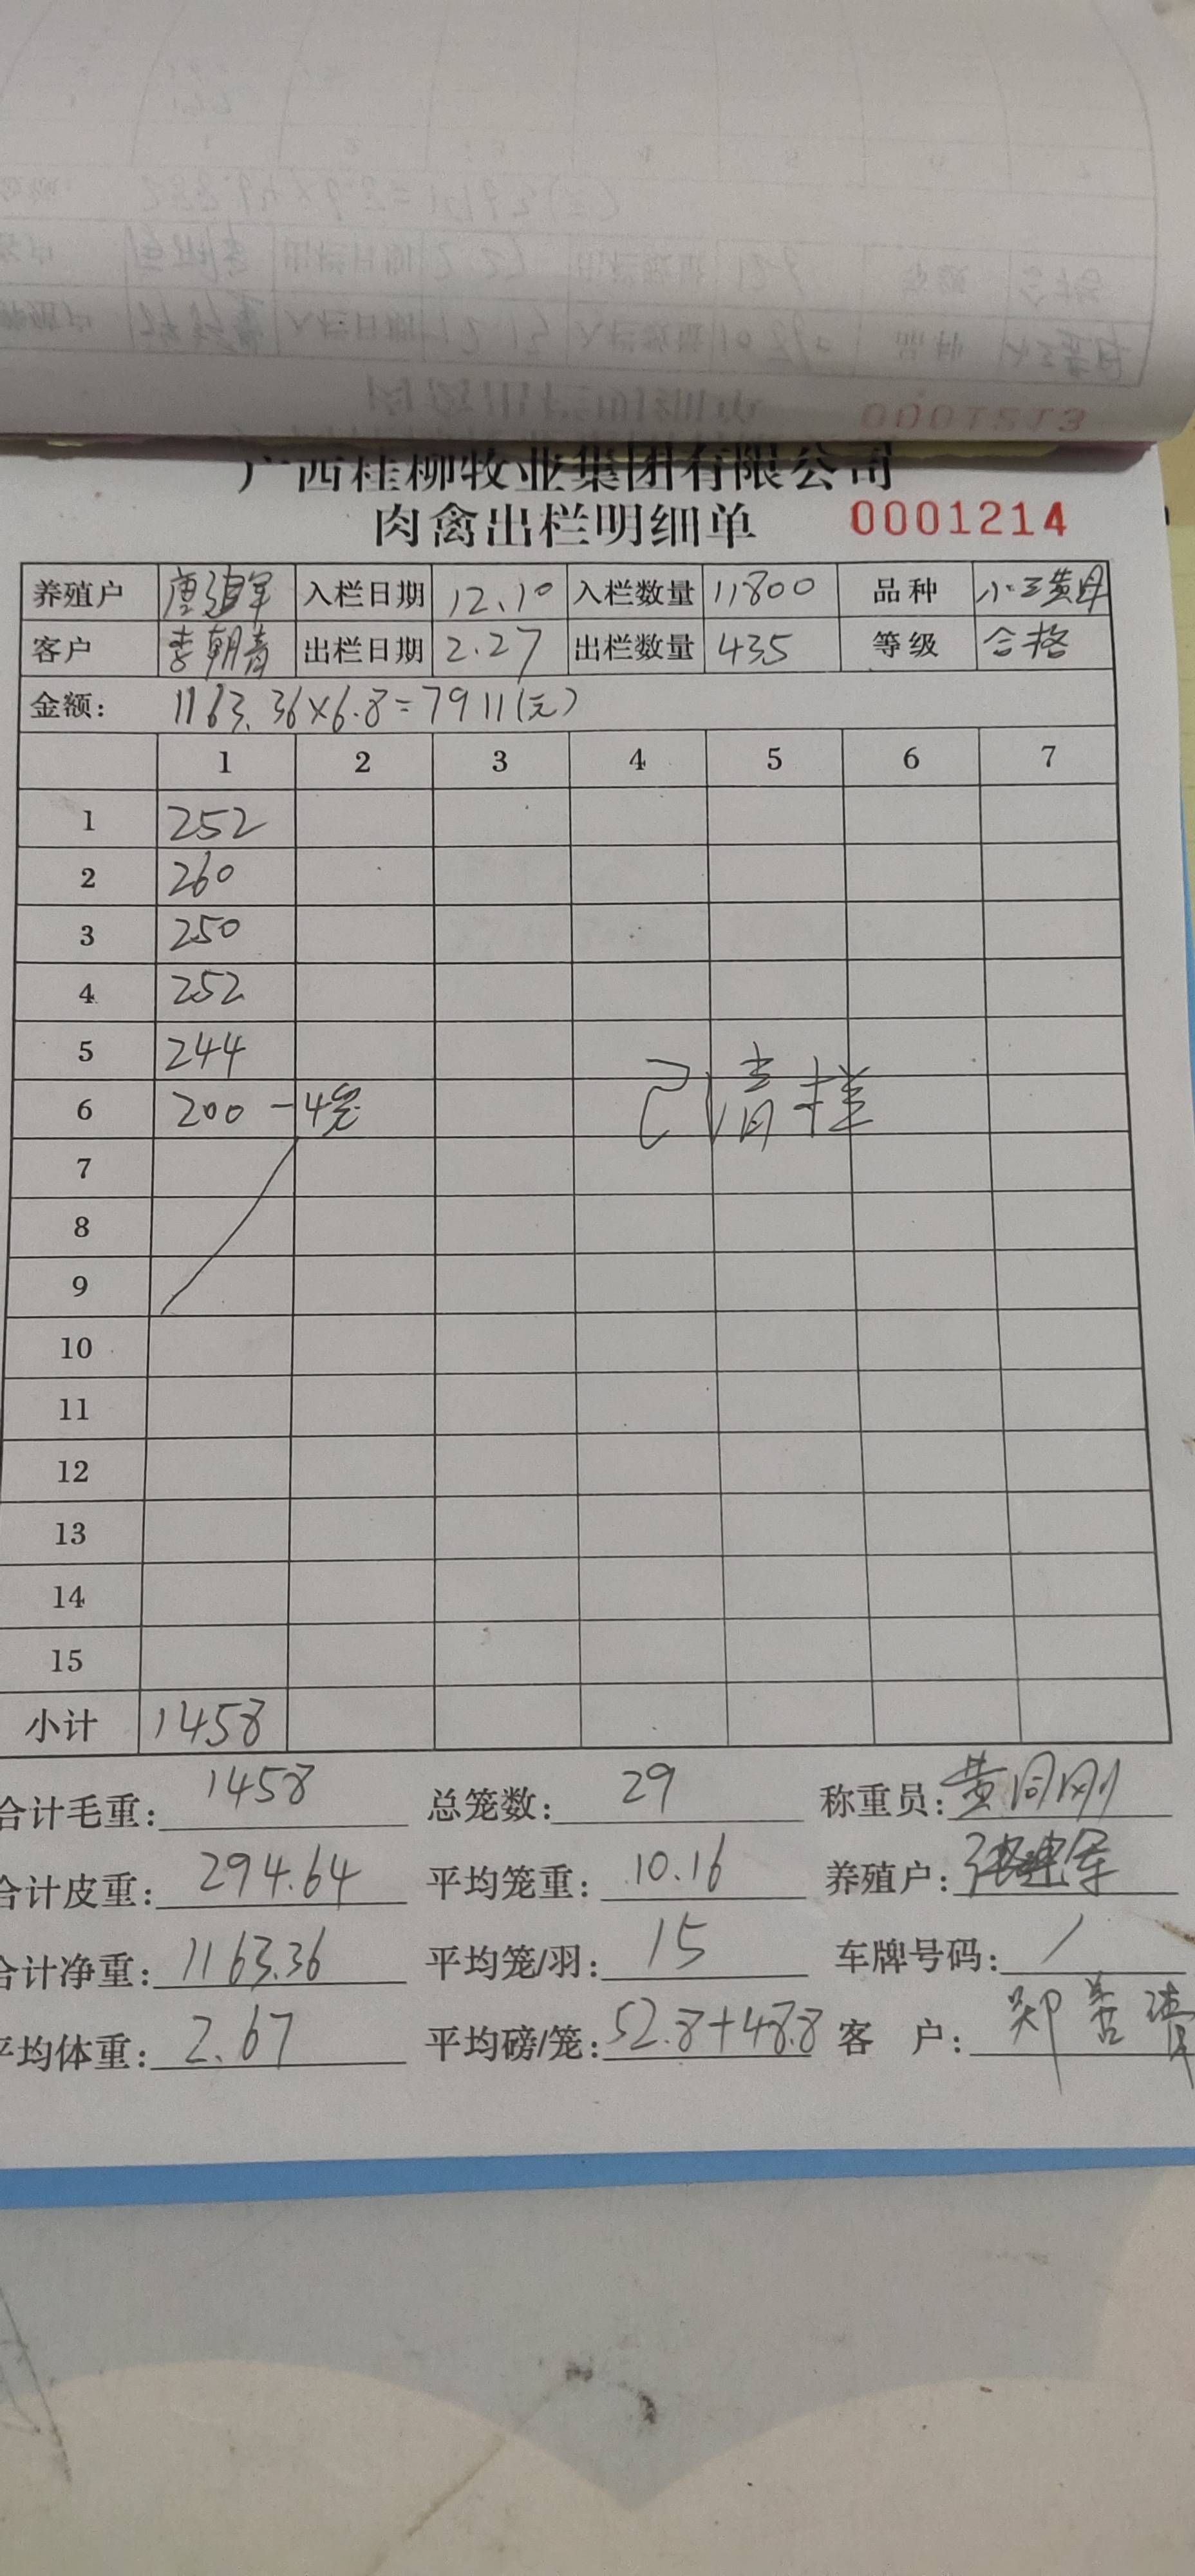 广西桂柳牧业集团有限公司
肉禽出栏明细单 0001214
养殖户 唐建军 入栏日期 12.10 入栏数量 11800 品种 小三黄母
客户 李朝青 出栏日期 2.27 出栏数量 435 等级 合格
金额: 1163.36×6.8=7911(元)
1 2 3 4 5 6 7
1 252
2 260
3 250
4 252
5 244
6 200 -4笼
已清栏
7
8
9
10
11
12
13
14
15
小计 1458
合计毛重: 1458 总笼数: 29 称重员:
合计皮重: 294.64 平均笼重: 10.16 养殖户:
合计净重: 1163.36 平均笼/羽: 15 车牌号码: /
平均体重: 2.67 平均磅/笼: 52.8+48.8 客 户: